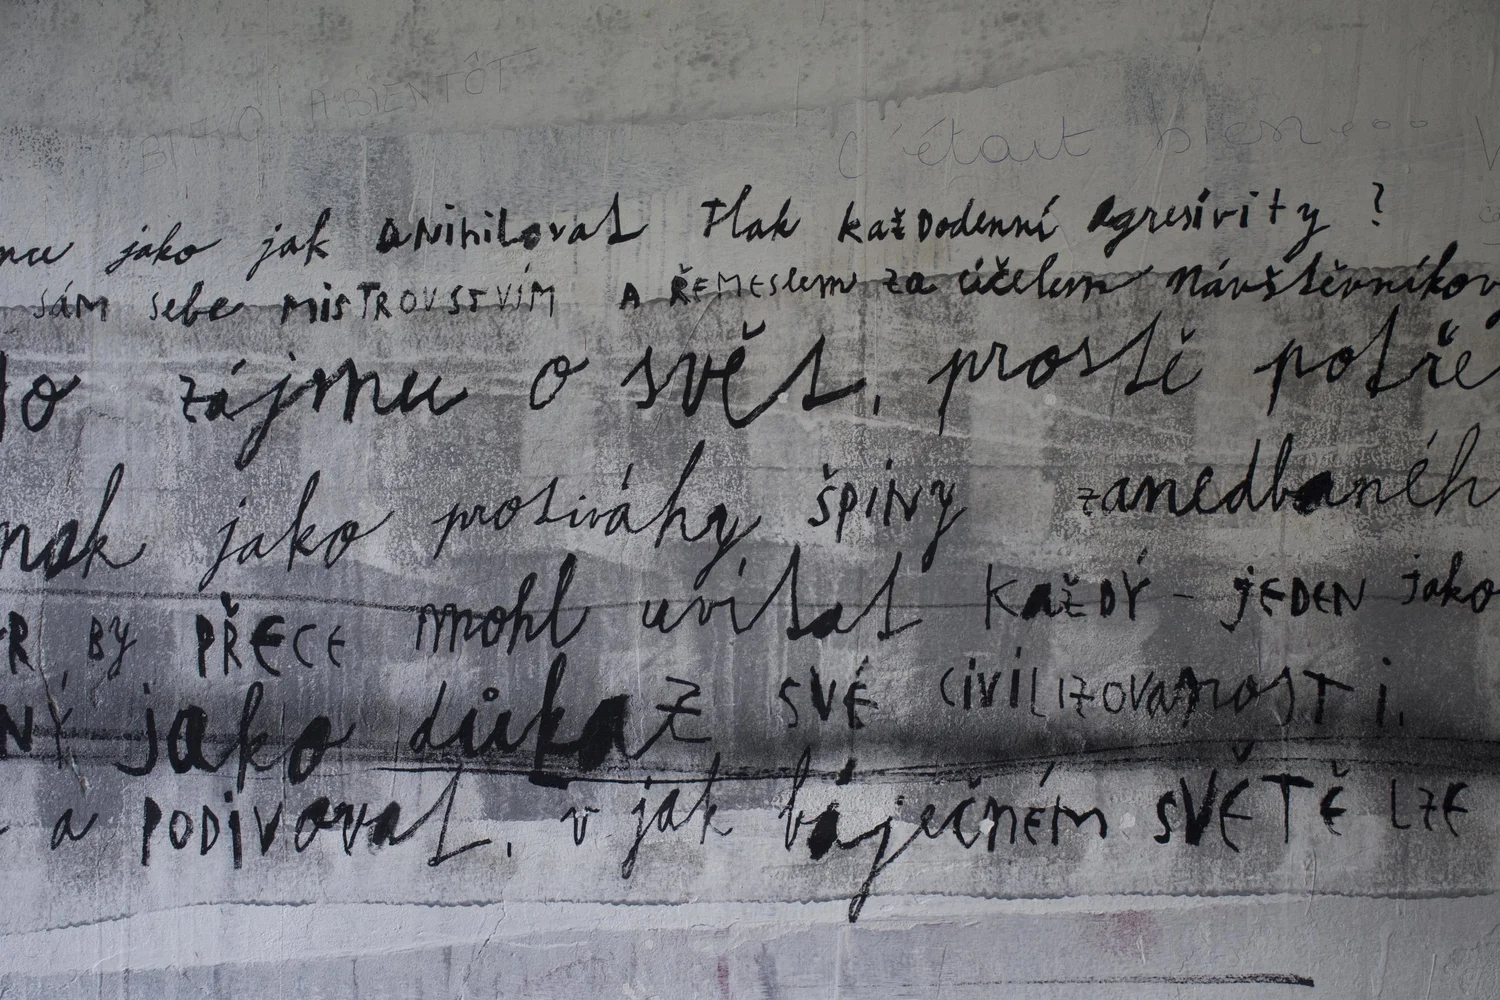 A BIENTÔT
C'était bien....
jako jak anihilovat tlak každodenní agresivity ?
sám sebe MISTROVSTVÍM A ŘEMESlem za účelem návštěvníkov
zájmu o svět, prostě potře
jako protiváhy špíny zanedbanéh
BY PŘECE mohl uvítat KAŽDÝ - JEDEN jako
NÝ jako důkaz své civilizovanosti.
a PODIVOVAT, v jak báječném SVĚTĚ LZE